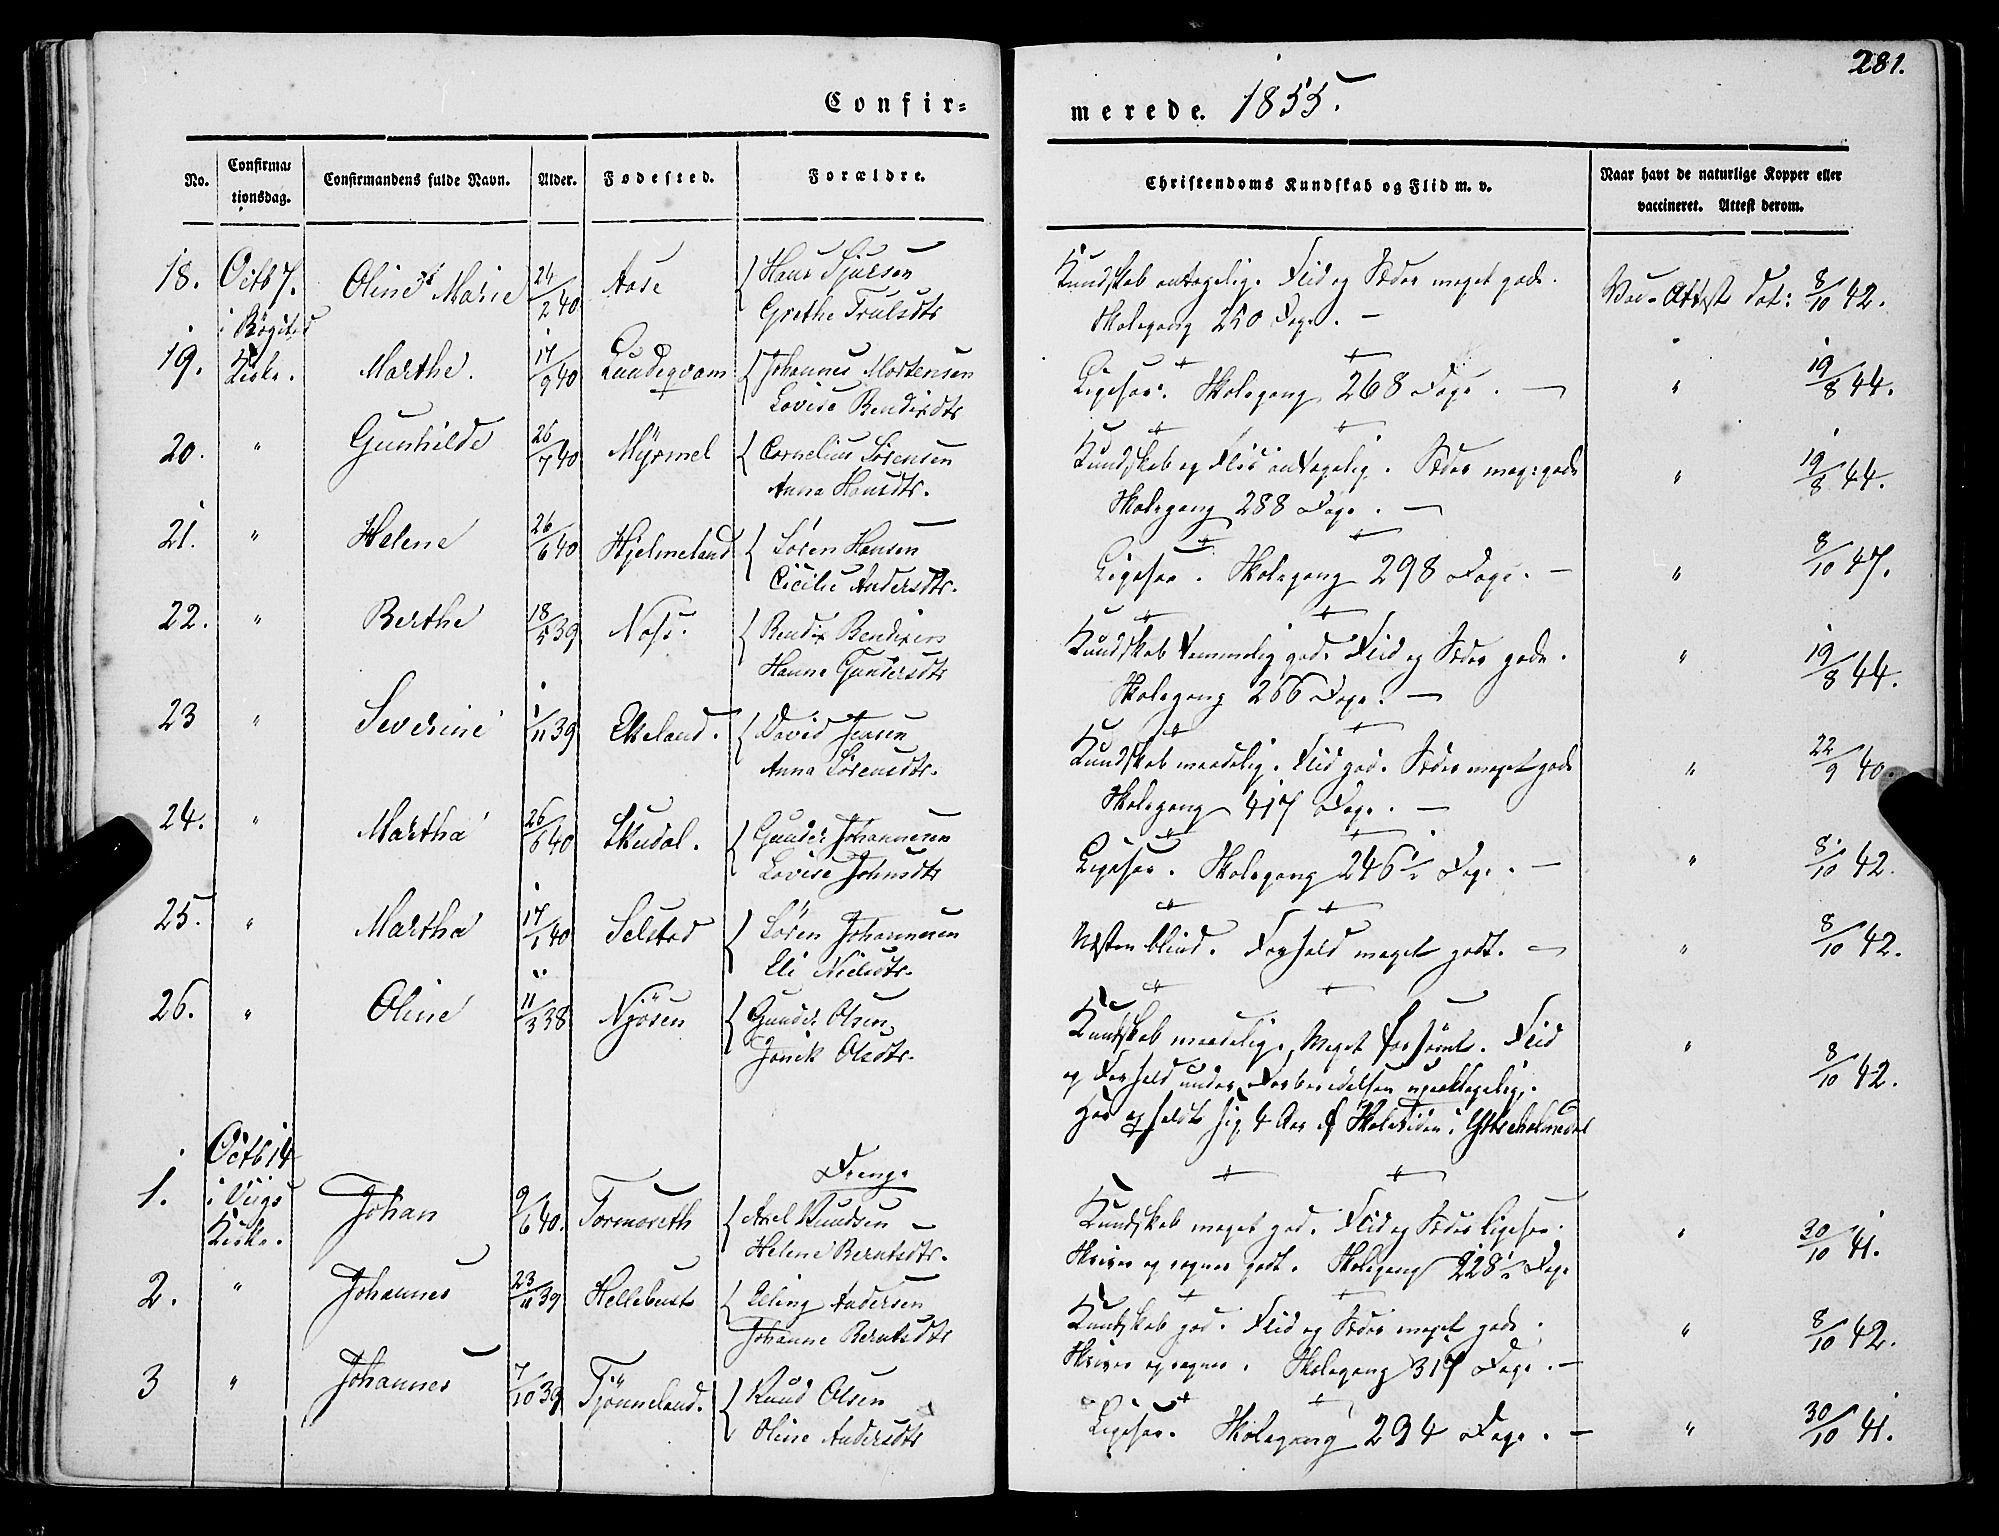 281.
Confir=
merede. 1855.
No.
Confirma=
tionsdag.
Confirmandens fulde Navn.
Alder.
Fødested.
Forældre.
Christendoms Kundskab og Flid m. v.
Naar havt de naturlige Kopper eller
vaccineret. Attest derom.
18. Octb 7. Oline Marie 24/2 40 Aase Hans
Grethe Trulsdtr
Kundskab antagelig. Flid og Sæder meget gode.
Skolegang 250 Dage. —
Vac. Attest dat: 8/10 42.
i
Kirke.
19. Marthe. 17/9 40 Lundeqvam Johannes Mortensen
Lovise Bendixdtr
Ligesaa. Skolegang 268 Dage. — " 19/8 44.
20. " Gunhilde 26/7 40 Myrmel Cornelius Sørensen
Anna Hansdtr.
Kundskab og Flid antagelig. Sæder meg: gode
Skolegang 288 Dage. —
" 19/8 44.
21. " Helene 26/6 40 Hjelmeland Søren Hansen
Cicilie Andersdtr.
Ligesaa. Skolegang 298 Dage. — " 8/10 47.
22. " Berthe 18/5 39 Bendix Bendixen
Hanne Gundersdtr
Kundskab temmelig god. Flid og Sæder gode.
Skolegang 266 Dage. —
" 19/8 44.
23 " Severine 1/11 39 Ekeland. David Jensen
Anna Sørensdtr.
Kundskab maadelig. Flid god. Sæder meget gode
Skolegang 417 Dage. —
" 22/9 40.
24. " Martha 26/6 40 Skudal. Gunder Johannesen
Lovise Johnsdtr
Ligesaa. Skolegang 246½ Dage. — " 8/10 42.
25. " Martha 17/1 40 Selstad Søren Johannesen
Eli Nielsdtr.
Næsten blind. Forhold meget godt. — " 8/10 42.
26. " Oline 11/3 38 Njøsen Gunder Olsen
Olsdtr.
Kundskab maadelig. Meget forsømt. Flid
og Forhold under Forberedelsen upaaklagelig.
Har opholdt sig 4 Aar af Skoletiden i
" 8/10 42.
Octb 14
i
Kirke.
Drenge
1. Johan 9/6 40. Tormoreth Axel Knudsen
Helene Berntsdtr.
Kundskab meget god. Flid og Sæder ligesaa.
Skriver og regner godt. Skolegang 228½ Dage
" 30/10 41.
2. " Johannes 23/11 39 Hellebust Elling Andersen
Johanne Berntsdtr
Kundskab god. Flid og Sæder meget gode.
Skriver og regner. Skolegang 317 Dage. —
" 8/10 42.
3 " Johannes 7/10 39 Tjønneland. Knud Olsen
Oline Andersdtr
Ligesaa. Skolegang 294 Dage. — " 30/10 41.